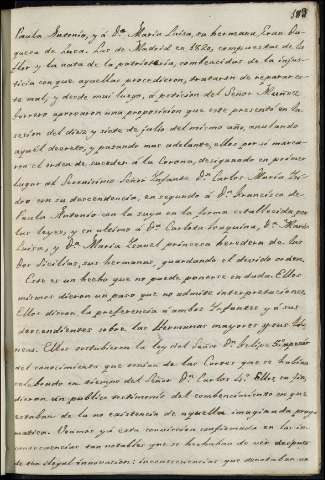 183
Paula Antonio, y á Dª Maria Luisa, su hermana, Gran Du-
quesa de Luca. Las de Madrid en 1820, compuestas de la
flor y la nata de la patriotería, combencidas de la injus-
ticia con que aquellas procedieron, trataron de reparar es-
te mal, y desde muy luego, á peticion del Señor Muñoz
Torrero aprovaron una proposicion que este presentó en la
sesion del diez y siete de julio del mismo año, anulando
aquel decreto, y pasando mas adelante, ellos por sí marca-
ron el orden de suceder á la Corona, designando en primer
lugar al Serenisimo Señor Infante Dn Carlos Maria Ysi-
dro con su descendencia, en segundo á Dn Francisco de
Paula Antonio con la suya en la forma establecida por
las leyes, y en ultimo á Dª Carlota Joaquina, Dª Maria
Luisa, y Dª Maria Ysavel, princesa heredera de las
dos Sicilias, sus hermanas, guardando el devido orden.
Este es un hecho que no puede ponerse en duda. Ellos
mismos dieron un paso que no admite interpretaciones.
Ellos dieron la preferencia á ambos Infantes y á sus
descendientes sobre las Hermanas mayores y sus
Ellos ostubieron la ley del Señor Dn Felipe 5º apesar
del conocimiento que tenian de las Cortes que se havian
celebrado en tiempo del Señor Dn Carlos 4º. Ellos en fin,
dieron un publico testimonio del combencimiento en que
estaban de la no existencia de aquella imaginada prag-
matica. Veamos yá esta conviccion confirmada en las in-
consecuencias tan notables que se hechaban de ver despues
de tan ilegal innovacion: inconsecuencias que denotaban no